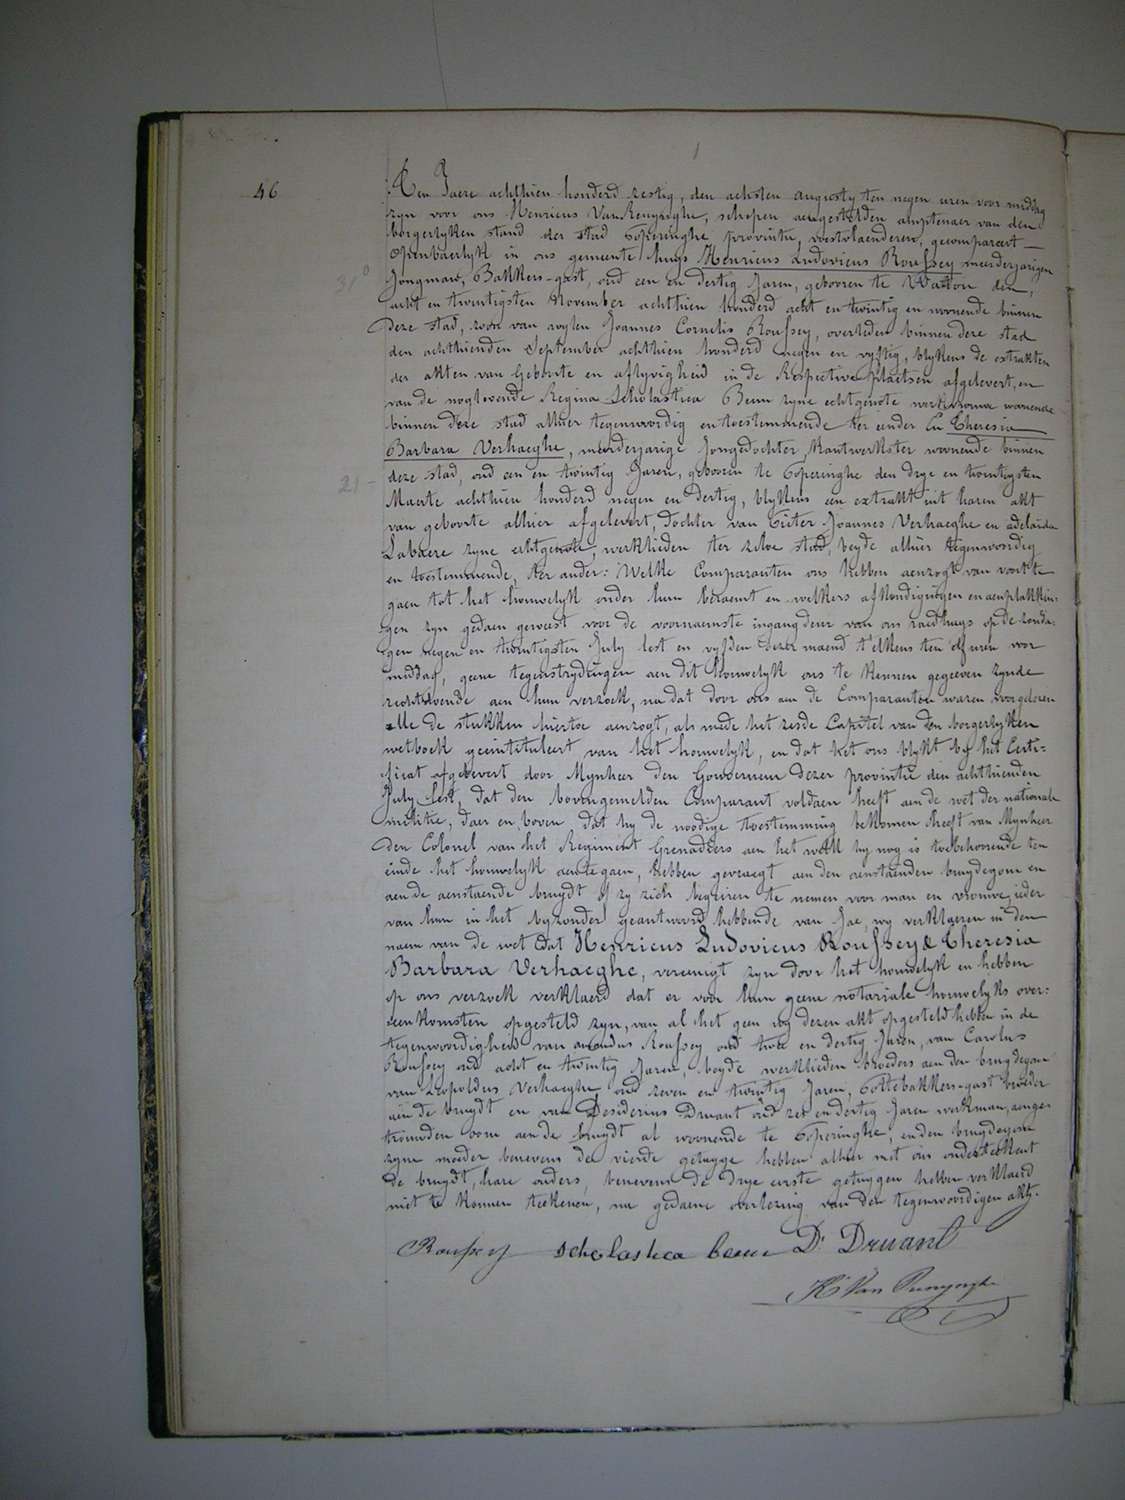 1
46
Den Jaere achthien honderd zestig, den achsten augusty ten negen uren voor middag
zyn voor ons Henricus Van Renynghe, schepen aengestelden amptenaer van den
borgerlyken stand der stad Poperinghe provintie westvlaenderen, gecompareert
openbaerlyk in ons gemeente huys Henricus Ludovicus Roussey meerderjarigen
31°
jongman, Bakkers-gast, oud een en dertig Jaren, gebooren te Watou den
acht en twintigsten November achthien honderd acht en twintig en woonende binnen
deze stad, zoon van wylen Joannes Cornelis Roussey, overleden binnen deze stad
den achthienden September achthien honderd negen en vyftig, blykens de extrakten
der akten van Geboorte en aflyvigheid in de Respective plaetsen afgelevert, en
van de noglevende Regina Scholastica Beun zyne echtgenote werkvrouw woonende
binnen deze stad alhier tegenwoordig en toestemmende ter eender En Theresia
Barbara Verhaeghe, meerderjarige Jongedochter, Kantwerkster woonende binnen
21-
deze stad, oud een en twintig Jaren, gebooren te Poperinghe den drye en twintigsten
Maerte achthien honderd negen en dertig, blykens een extrakt uit haren akt
van geboorte alhier afgelevert, dochter van Pieter Joannes Verhaeghe en adelaida
Labaere zyne echtgenote, werklieden ter zelve stad, beyde alhier tegenwoordig
en toestemmende, ter ander: Welke Comparanten ons hebben aenzogt van voort te
gaen tot het houwelyk onder hun beraemt en welkers afkondigingen en aenplakkin:
gen zyn gedaen geweest voor de voornaemste ingangdeur van ons raedhuys op de zonda:
gen negen en twintigsten July lest en vyfden dezer maend t'elkens ten elf uren voor
middag, geene tegenstrydingen aen dit houwelyk ons te kennen gegeeven zynde
rechtdoende aen hun verzoek, na dat door ons aen de Comparanten waren voorgelezen
alle de stukken hiertoe aenzogt, als mede het zesde Capitel van den borgerlyken
wetboek geintituleert van het houwelyk, en dat het ons blykt by het Certi:
ficat afgelevert door Mynheer den Gouverneur dezer provintie den achthienden
July lest, dat den bovengemelden Comparant voldaen heeft aen de wet der nationale
militie, daer en boven dat hy de noodige toestemming bekomen heeft van Mynheer
den Colonel van het Regiment Grenadiers aen het welk hy nog is toebehoorende ten
einde het houwelyk aen te gaen, hebben gevraegt aen den aenstaenden bruydegom en
aen de aenstaende bruydt of zy zich begeiren te nemen voor man en vrouwe, ieder
van hun in het byzonder geantwoord hebbende van Jae, wy verklaeren in den
naem van de wet dat Henricus Ludovicus Roussey & Theresia
Barbara Verhaeghe, vereenigt zyn door het houwelyk en hebben
op ons verzoek verklaerd dat er voor hun geene notariale houwelyks over:
eenkomsten opgesteld zyn, van al het geen wy dezen akt opgesteld hebben in de
tegenwoordigheid van amandus Roussey oud twee en dertig Jaren, van Carolus
Roussey oud acht en twintig Jaren, beyde werklieden broeders aen den bruydegom
van Leopoldus Verhaeghe, oud zeven en twintig Jaren, Pottebakkers-gast broeder
aen de bruydt en van Desiderius Druant oud zes en dertig Jaren werkman, aenge
trouwden oom aen de bruydt al woonende te Poperinghe, en den bruydegom
zyne moeder benevens de vierde getuyge hebben alhier met ons onderteekent
de bruydt, hare ouders, benevens de drye eerste getuygen hebben verklaerd
niet te konnen teekenen, na gedaene overlezing van den tegenwoordigen akt.
Roussey scholastica beun D. Druant
H. Van Renynghe